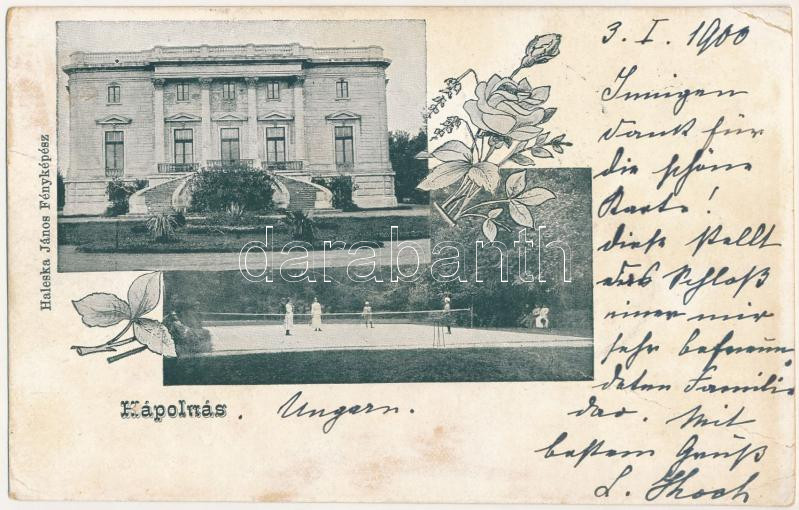 3. I. 1900
Innigen
Dank für
die schöne
Karte!
diese stellt
das Schloß
einer mir
sehr befreun
deten Familie
dar. Mit
bestem Gruß
L.
Haleska János Fényképész
darabanth
Kápolnás. Ungarn.